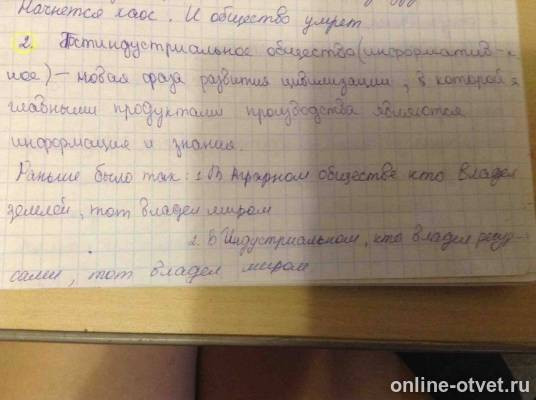 Начнется хаос. И общество умрет
2. Постиндустриальное общество (информатив-
ное) – новая фаза развития цивилизации, в которой
главными продуктами производства являются
информация и знания.
Раньше было так: 1. В Аграрном обществе кто владел
землей, тот владел миром
2. В Индустриальном, кто владел ресур-
сами, тот владел миром
online-otvet.ru